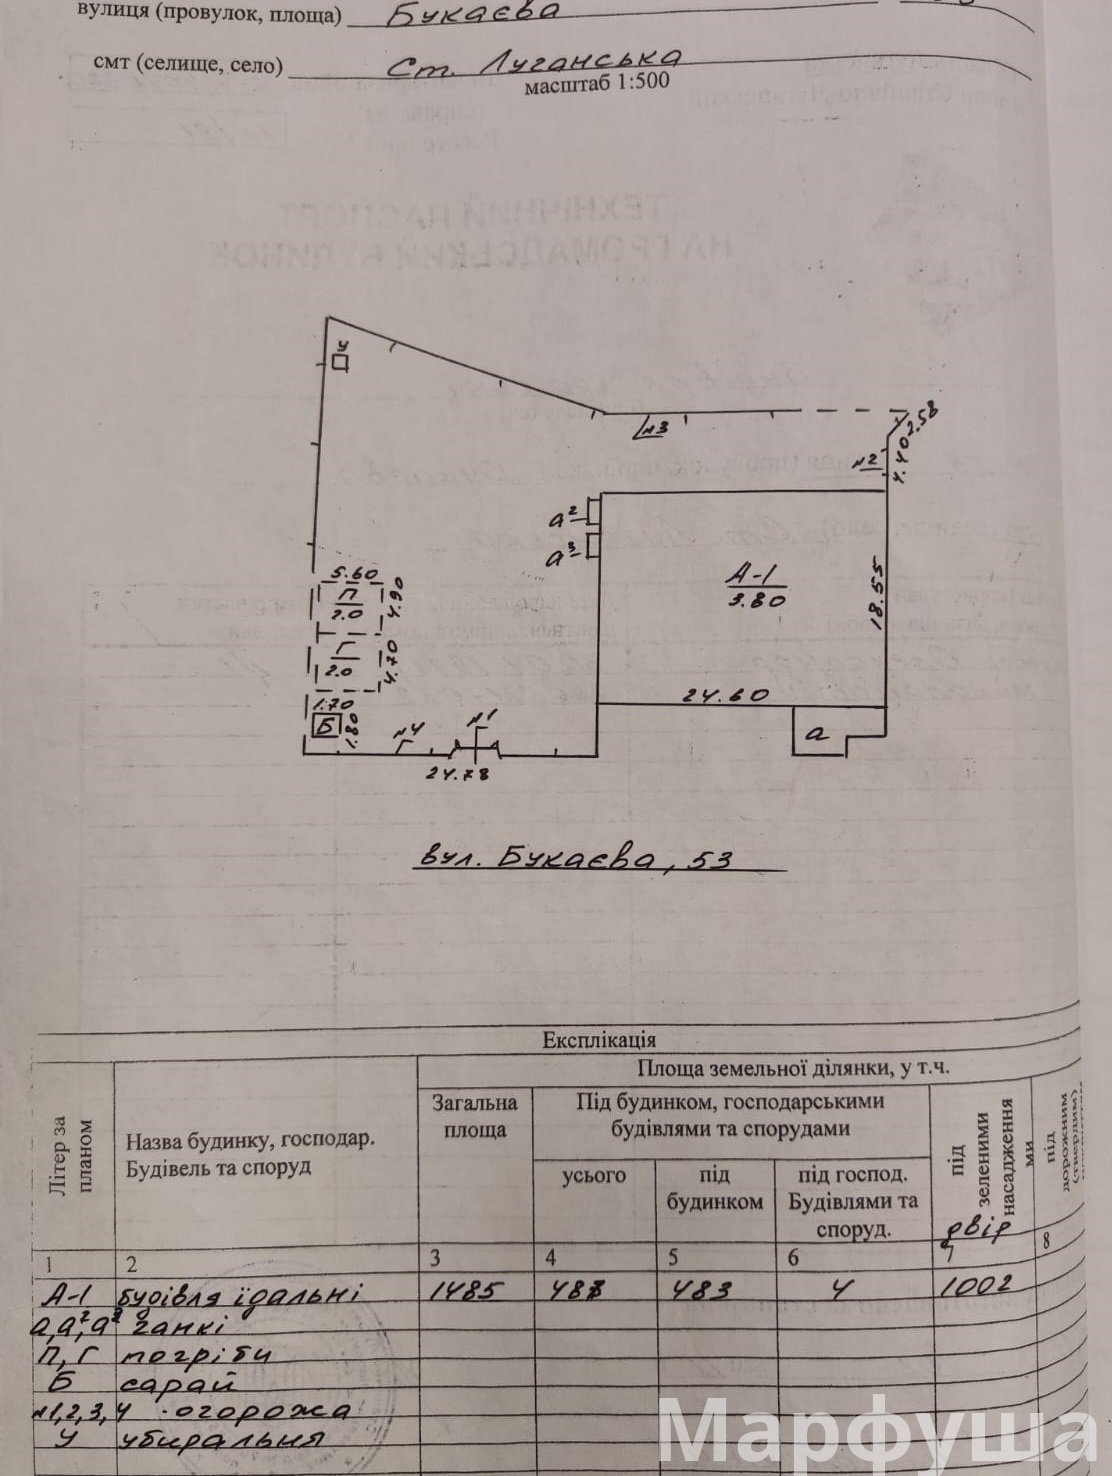 вулиця (провулок, площа) Букаєва
смт (селище, село) Ст. Луганська
масштаб 1:500
У
№3
2.58
4.40
№2
а²
а³
А-1
3.80
18.55
5.60
П
2.0
4.90
Г
2.0
4.70
1.70
Б
1.80
24.60
а
№4
№1
24.78
вул. Букаєва, 53
Експлікація
Літер за планом
Назва будинку, господар. Будівель та споруд
Площа земельної ділянки, у т.ч.
Загальна площа
Під будинком, господарськими будівлями та спорудами
усього
під будинком
під господ. Будівлями та споруд.
під зеленими насадження ми
двір
під дорожним (твердим)
1 2 3 4 5 6 7 8
А-1 будівля їдальні 1485 487 483 4 1002
а,а²,а³ ганкі
П, Г погріби
Б сарай
№1,2,3,4 огорожа
У убиральня
Марфуша